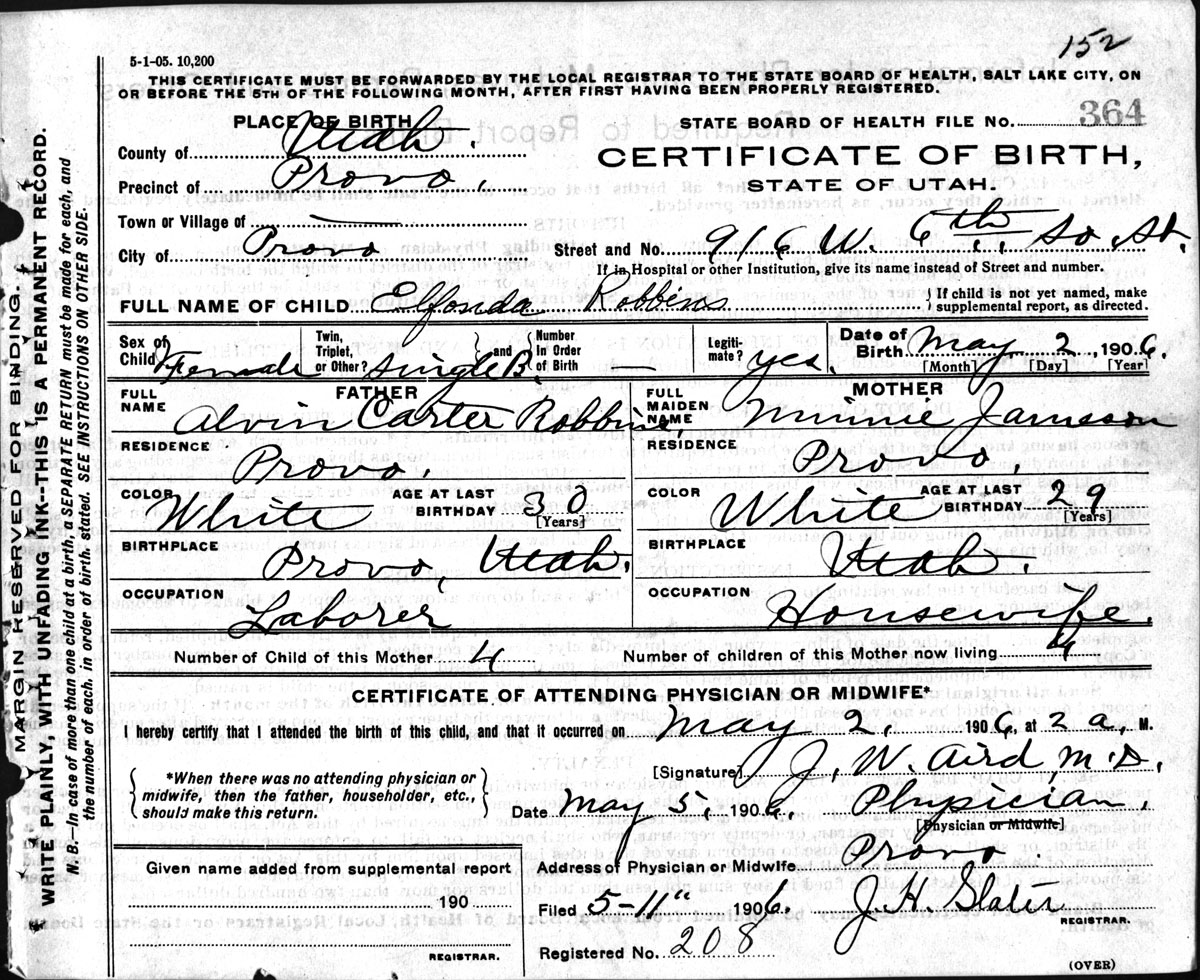 152
5-1-05. 10,200
THIS CERTIFICATE MUST BE FORWARDED BY THE LOCAL REGISTRAR TO THE STATE BOARD OF HEALTH, SALT LAKE CITY, ON
OR BEFORE THE 5TH OF THE FOLLOWING MONTH, AFTER FIRST HAVING BEEN PROPERLY REGISTERED.
PLACE OF BIRTH
STATE BOARD OF HEALTH FILE NO. 364
County of Utah.
CERTIFICATE OF BIRTH,
Precinct of Provo.
STATE OF UTAH.
Town or Village of
City of Provo
Street and No. 916 W. 6th So St.
If in Hospital or other Institution, give its name instead of Street and number.
FULL NAME OF CHILD Elfonda Robbins
{ If child is not yet named, make
supplemental report, as directed.
Sex of Child Female
Twin, Triplet, or Other? Single B. and Number In Order of Birth —
Legiti-mate? yes.
Date of Birth May 2, 1906.
[Month] [Day] [Year]
FATHER
FULL NAME Alvin Carter Robbins,
MOTHER
FULL MAIDEN NAME Minnie Jameson
RESIDENCE Provo.
RESIDENCE Provo,
COLOR White AGE AT LAST BIRTHDAY 30 [Years]
COLOR White AGE AT LAST BIRTHDAY 29 [Years]
BIRTHPLACE Provo, Utah.
BIRTHPLACE Utah.
OCCUPATION Laborer
OCCUPATION Housewife.
Number of Child of this Mother 4
Number of children of this Mother now living 4
CERTIFICATE OF ATTENDING PHYSICIAN OR MIDWIFE*
I hereby certify that I attended the birth of this child, and that it occurred on May 2, 1906, at 2 a, M.
{ *When there was no attending physician or
midwife, then the father, householder, etc.,
should make this return. }
[Signature] J. W. Aird, M.D.,
Date May 5, 1906. Physician,
[Physician or Midwife]
Given name added from supplemental report
190
REGISTRAR.
Address of Physician or Midwife Provo
Filed 5-11" 1906. J. H. Slater
REGISTRAR.
Registered No. 208
(OVER)
MARGIN RESERVED FOR BINDING
WRITE PLAINLY, WITH UNFADING INK--THIS IS A PERMANENT RECORD.
N. B.--In case of more than one child at a birth, a SEPARATE RETURN must be made for each, and
the number of each, in order of birth, stated. SEE INSTRUCTIONS ON OTHER SIDE.